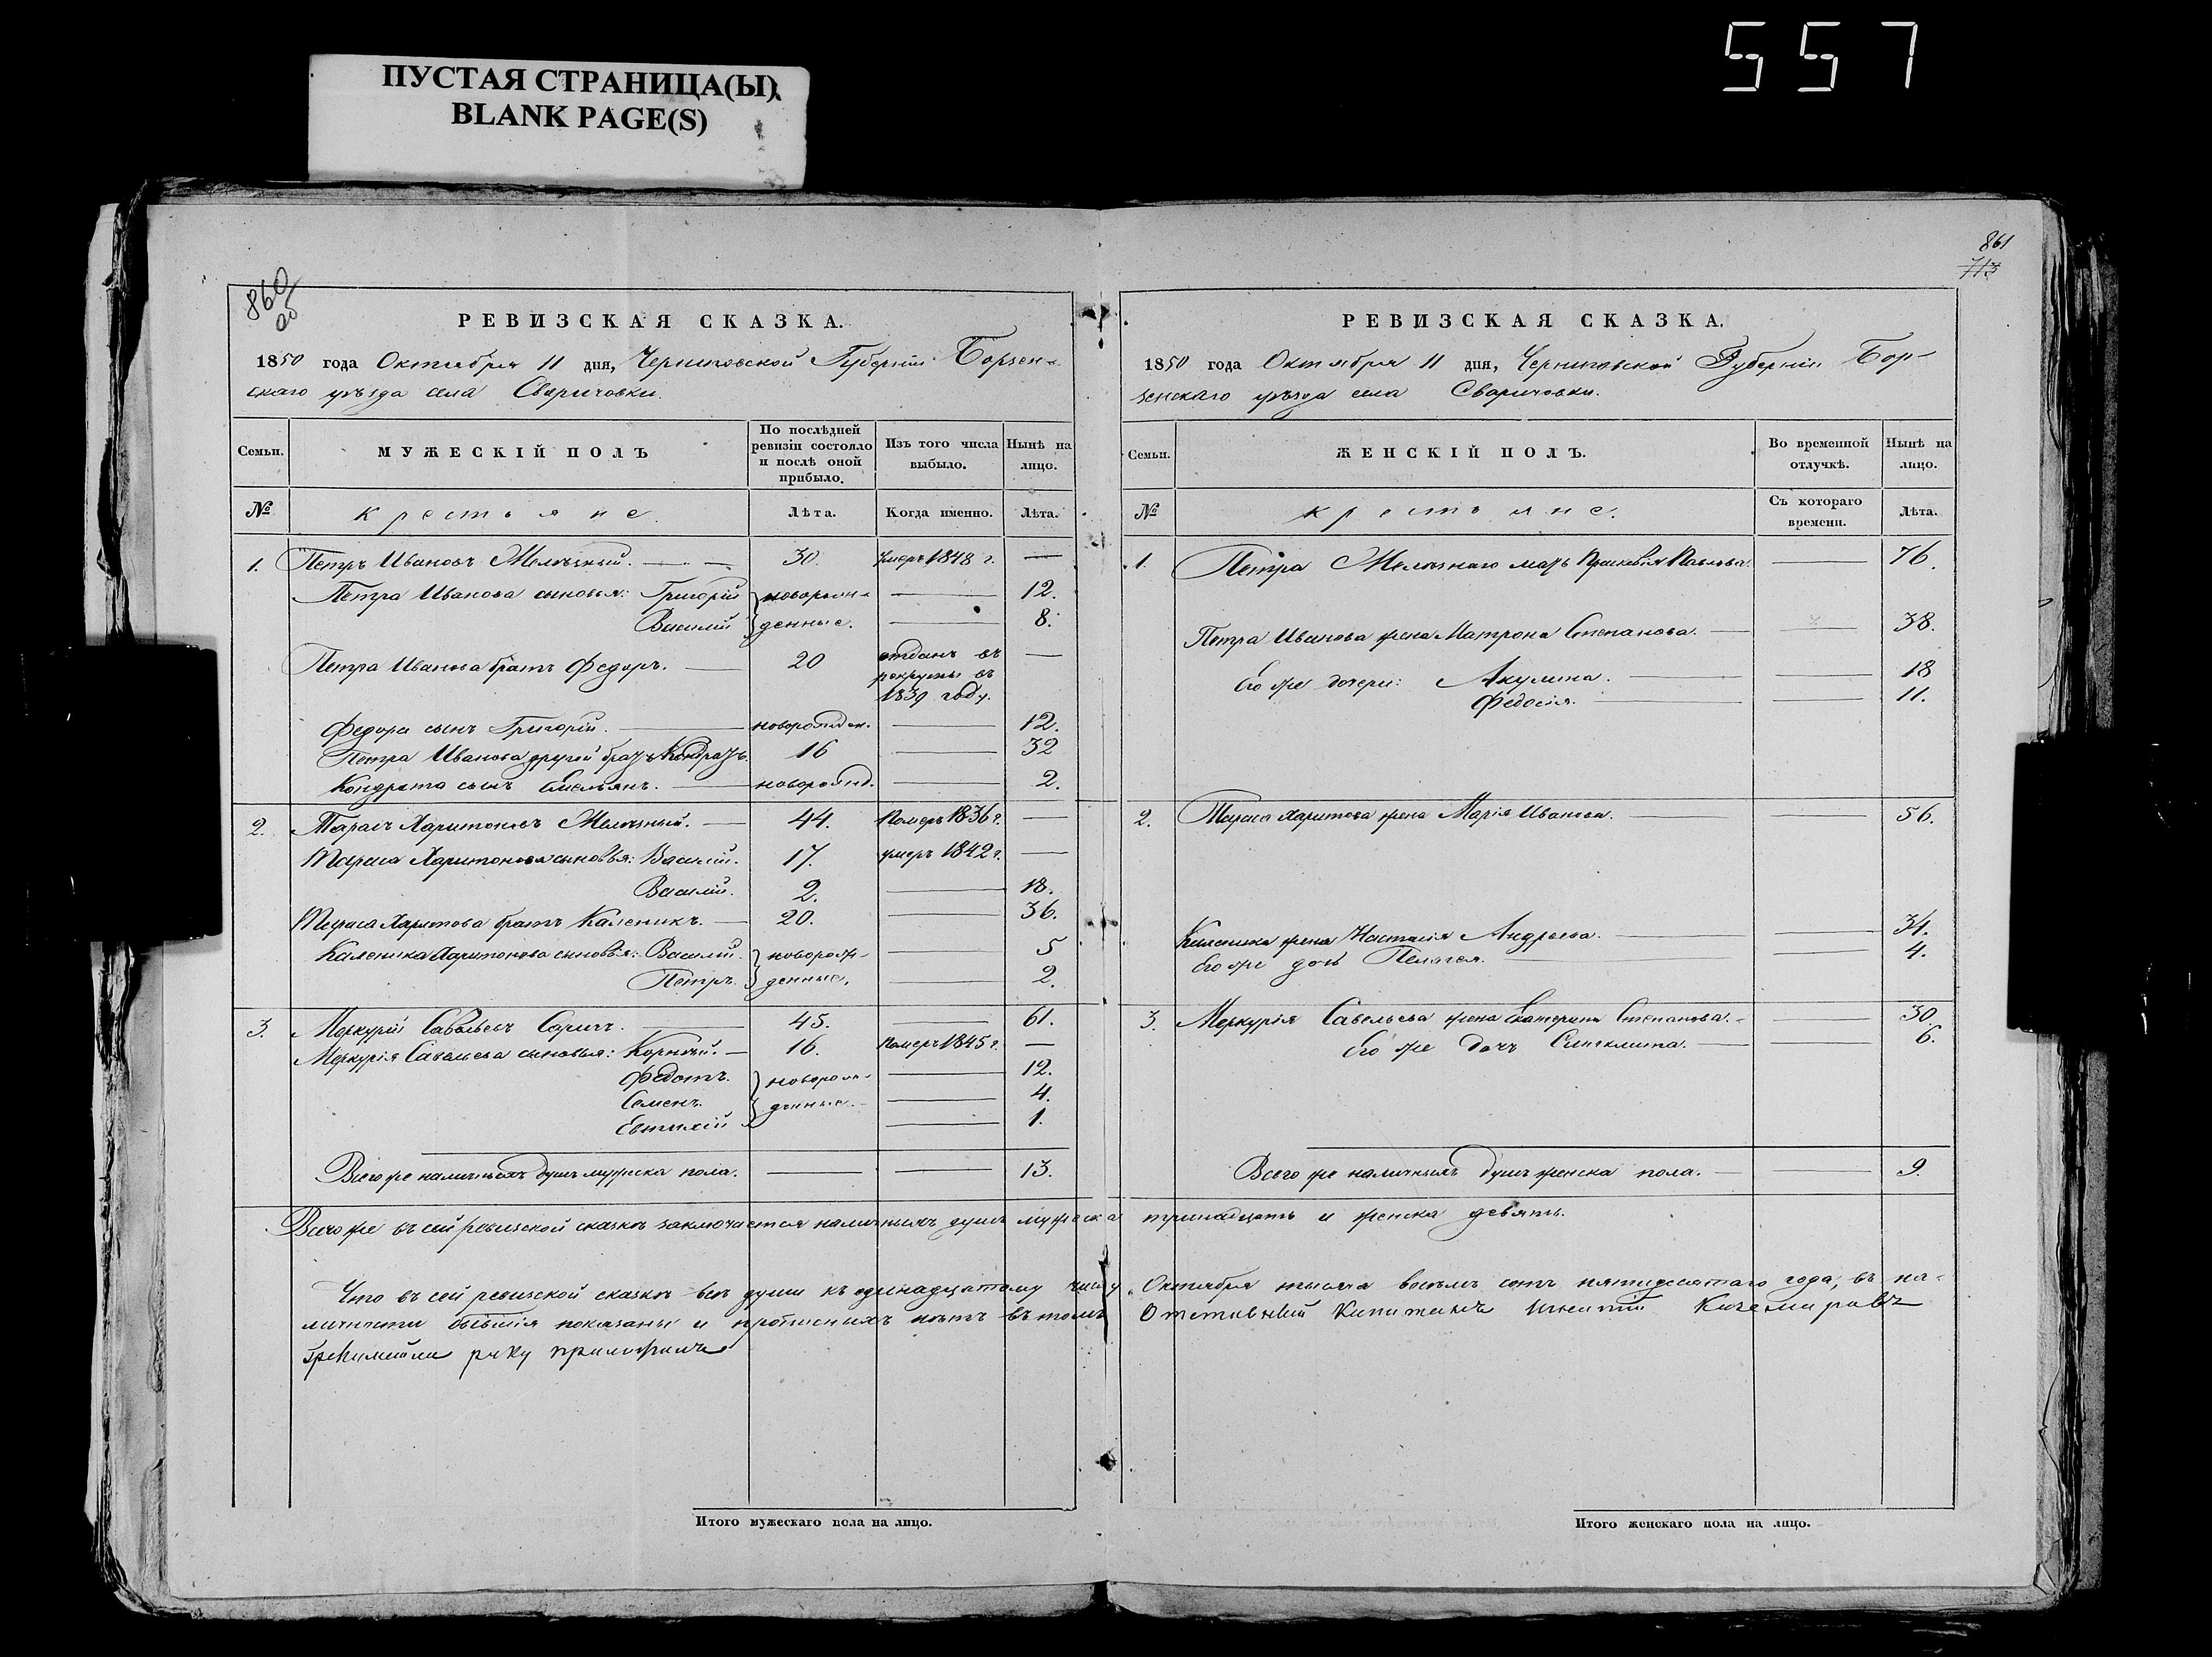 557
ПУСТАЯ СТРАНИЦА(Ы)
BLANK PAGE(S)
860
об
РЕВИЗСКАЯ СКАЗКА.
1850 года Октября 11 дня, Черниговской Губерніи Борзен-
скаго уѣзда села Сваричовки.
Семьи.
МУЖЕСКІЙ ПОЛЪ
По послѣдней ревизіи состояло и послѣ оной прибыло.
Изъ того числа выбыло.
Нынѣ на лицо.
№
крестьяне.
Лѣта.
Когда именно.
Лѣта.
1. Петръ Ивановъ 30. умеръ 1848 г. —
Петра Иванова сыновья: Григорій новорож- — 12.
Василій денные. — 8.
Петра Иванова братъ Федоръ. — 20 отданъ въ —
рекруты въ
1839 году.
Федора сынъ Григорій. — новорожден. — 12.
Петра Иванова другой братъ Кондратъ. 16 — 32
Кондрата сынъ Емельянъ. — новорожд. — 2.
2. Тарасъ Харитоновъ — 44. Померъ 1836 г. —
Тараса Харитонова сыновья: Василій. 17. умеръ 1842 г. —
Василій. 2. — 18.
Тараса Харитова братъ Каленикъ. — 20. — 36.
Каленика Харитонова сыновья: Василій. новорож- — 5
Петръ. денные. — 2.
3. Меркурій Савельевъ 45. — 61.
Меркурія Савельева сыновья: Корнѣй. — 16. Померъ 1845 г. —
Федотъ. новорож- — 12.
Семенъ. денные. — 4.
Евтихій — 1.
Всего же наличныхъ душъ мужеска пола. — — 13.
Всего же въ сей ревизской сказкѣ заключается наличныхъ душъ мужеска тринадцать и женска девять.
Что въ сей ревизской сказкѣ всѣ души къ одинадцатому числу Октября тысяча восемь сотъ пятидесятаго года, въ на-
личности бывшія показаны и прописныхъ нѣтъ въ томъ Отставный Капитанъ
руку приложилъ
Итого мужескаго пола на лицо.
861
713
РЕВИЗСКАЯ СКАЗКА.
1850 года Октября 11 дня, Черниговской Губерніи Бор-
зенскаго уѣзда села Сваричовки.
Семьи.
ЖЕНСКІЙ ПОЛЪ.
Во временной отлучкѣ.
Нынѣ на лицо.
№
крестьяне.
Съ котораго времени.
Лѣта.
1. Петра мать Прасковія Павлова. — 76.
Петра Иванова жена Матрона Степанова. — 38.
Его же дочери: Акулина. — 18
Федосія. — 11.
2. Тараса Харитова жена Марія Иванова. — 56.
Каленика жена Настасія Андреева. — 34.
Его же дочь Пелагея. — 4.
3. Меркурія Савельева жена Екатерина Степанова. — 30.
Его же дочь Синклита. — 6.
Всего же наличныхъ душъ женска пола. — 9.
Итого женскаго пола на лицо.